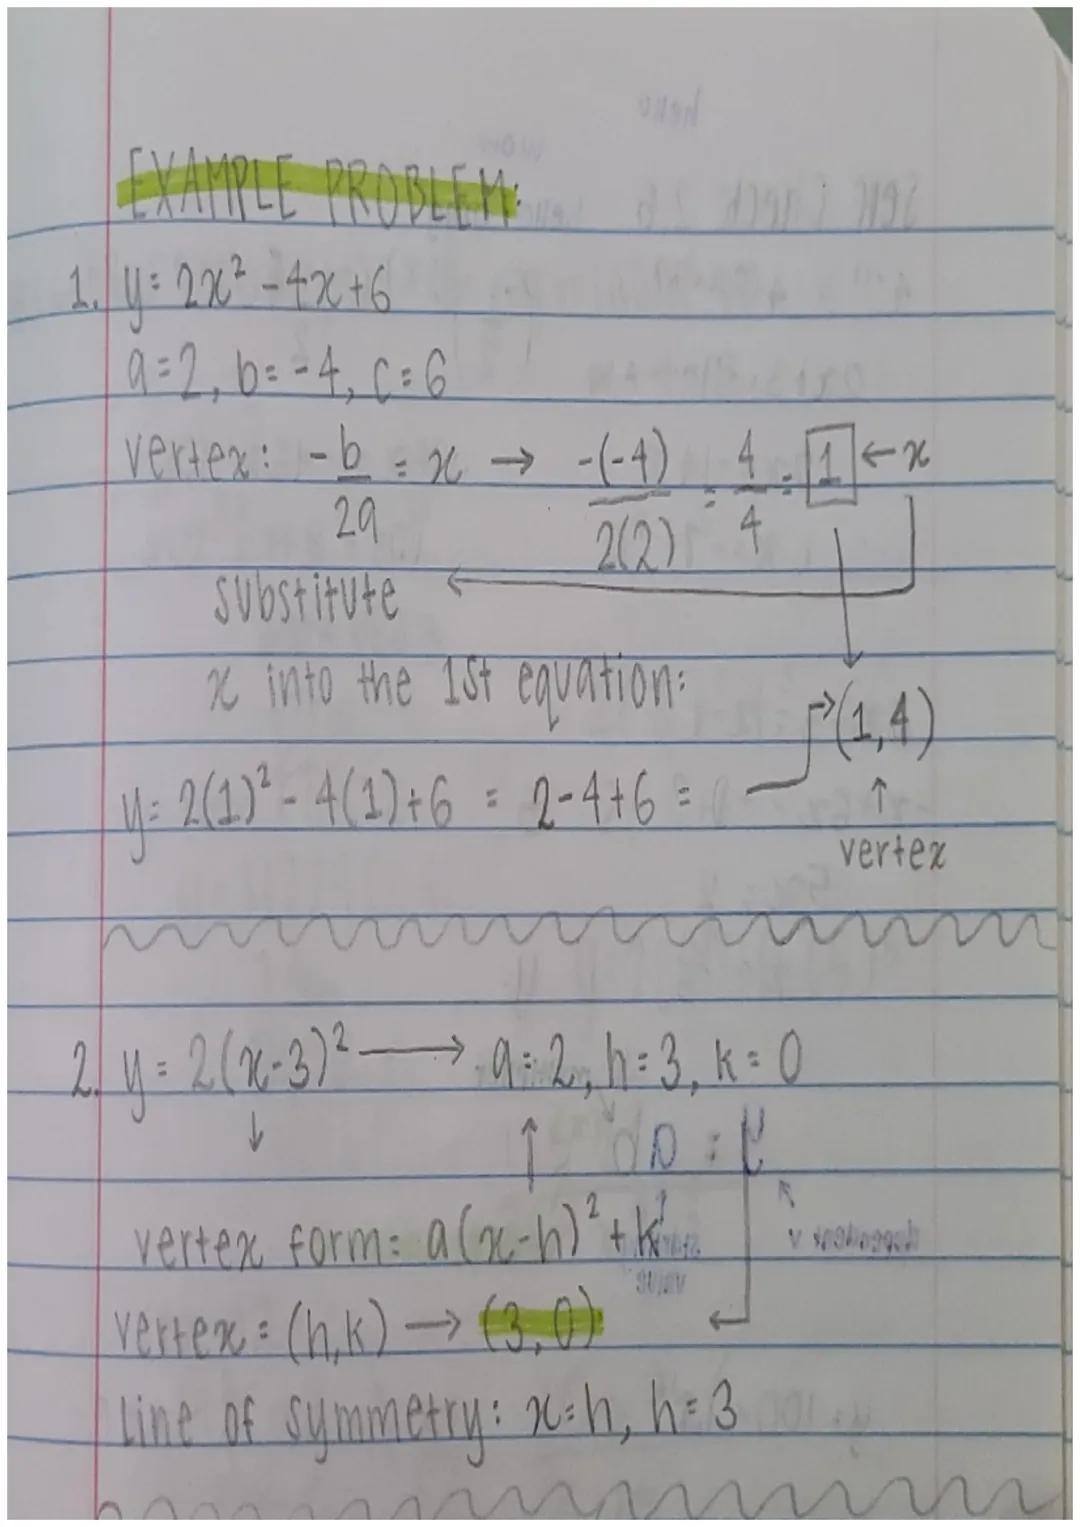 EXAMPLE PROBLEM:
1. y = 2x² - 4x + 6
a = 2, b = -4, c = 6
vertex: -b/2a = x → -(-4)/2(2) = 4/4 = 1 ← x
substitute
x into the 1st equation:
(1,4)
y = 2(1)² - 4(1) + 6 = 2 - 4 + 6 =
↑
vertex
2. y = 2(x-3)² → a = 2, h = 3, k = 0
↓ ↑
vertex form = a(x-h)² + k
vertex = (h,k) → (3,0)
line of symmetry: x = h, h = 3